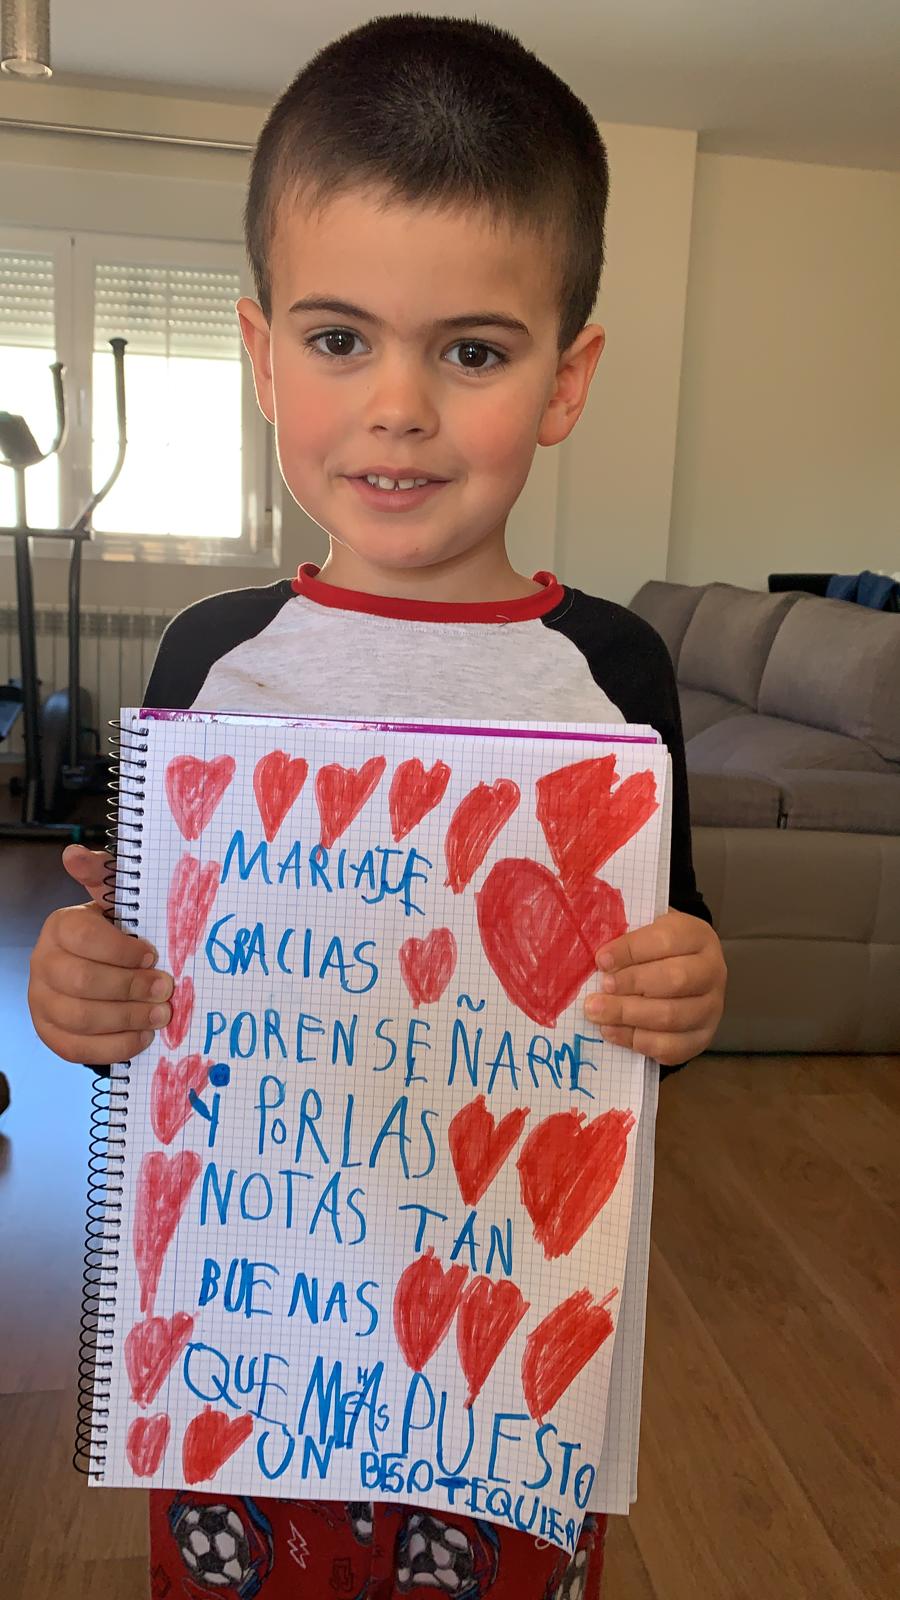 MARIAJE
GRACIAS
POR ENSEÑARME
Y POR LAS
NOTAS TAN
BUENAS
QUE ME HAS PUESTO
UN BESO TEQUIER